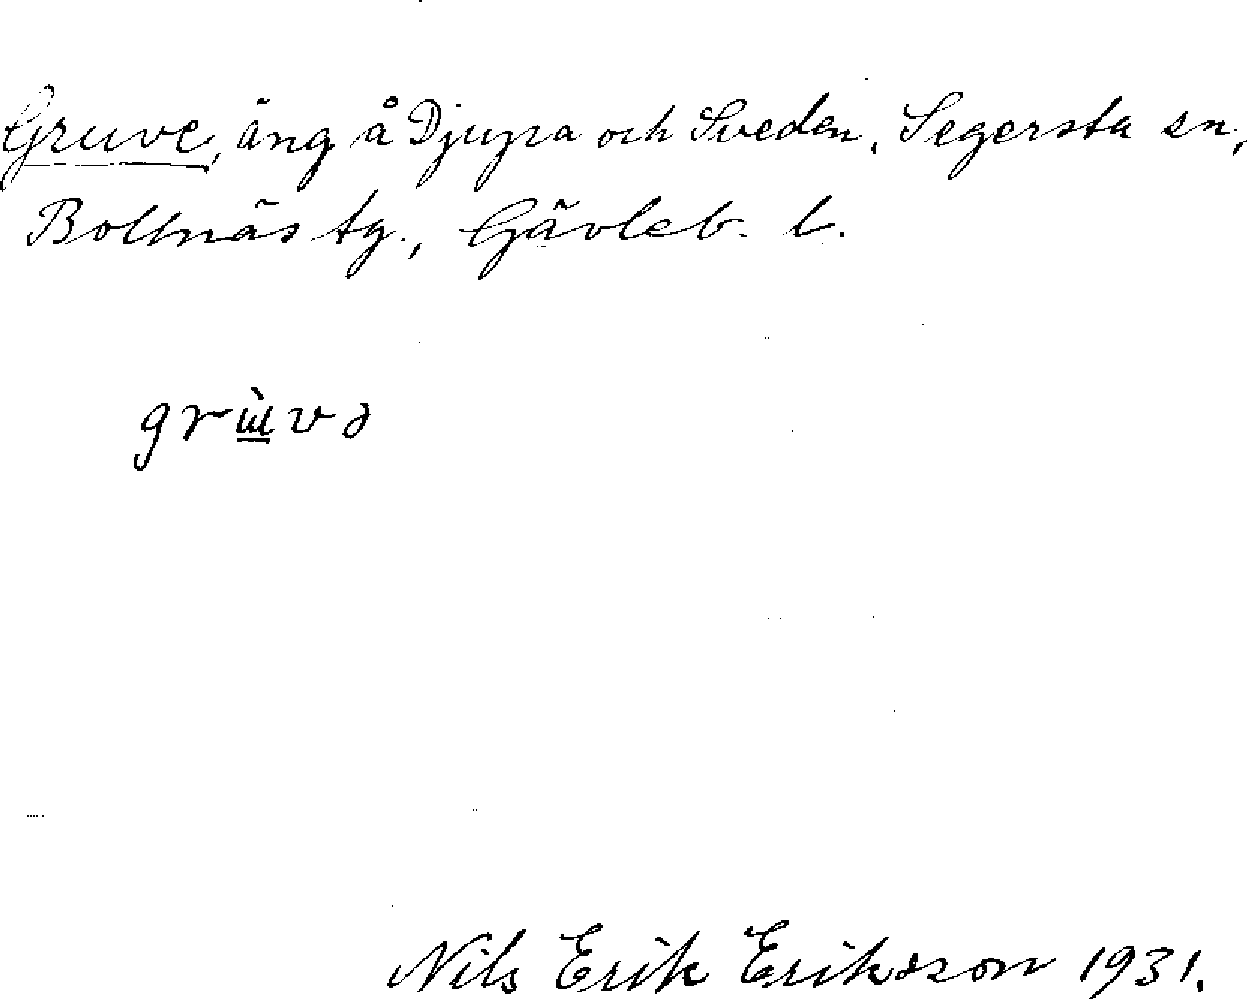 Gruve, äng å Djupa och Sveden, Segersta sn,
Bollnäs tg., Gävleb. l.
grɯ̲̀və
Nils Erik Eriksson 1931.